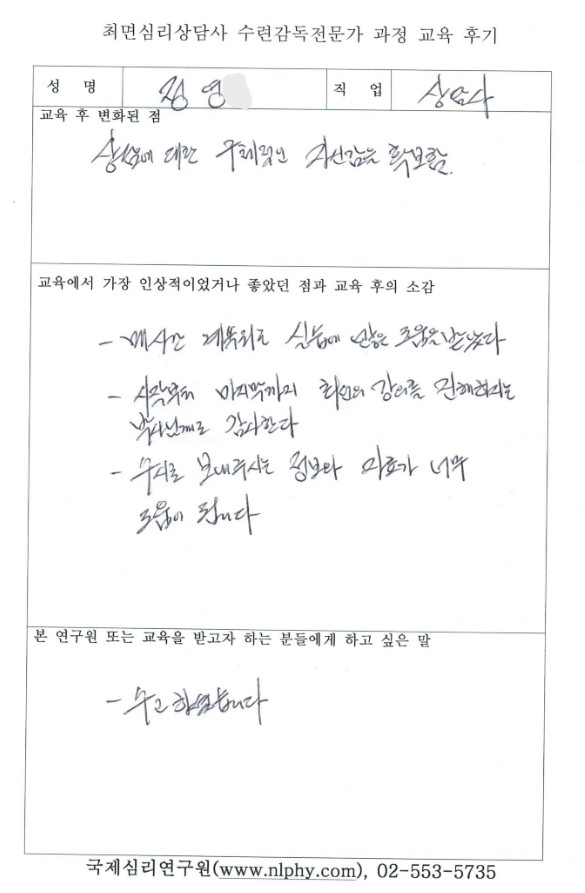 최면심리상담사 수련감독전문가 과정 교육 후기
성 명 정 영 직 업 상담사
교육 후 변화된 점
상담에 대한 구체적인 자신감을 확보함.
교육에서 가장 인상적이었거나 좋았던 점과 교육 후의 소감
- 매시간 계속되는 실습에 많은 도움을 받았다
- 시작부터 마지막까지 최선의 강의를 진행하시는
박사님께 감사한다
- 수시로 보내주시는 정보와 자료가 너무
도움이 됩니다
본 연구원 또는 교육을 받고자 하는 분들에게 하고 싶은 말
- 수고하셨습니다
국제심리연구원(www.nlphy.com), 02-553-5735